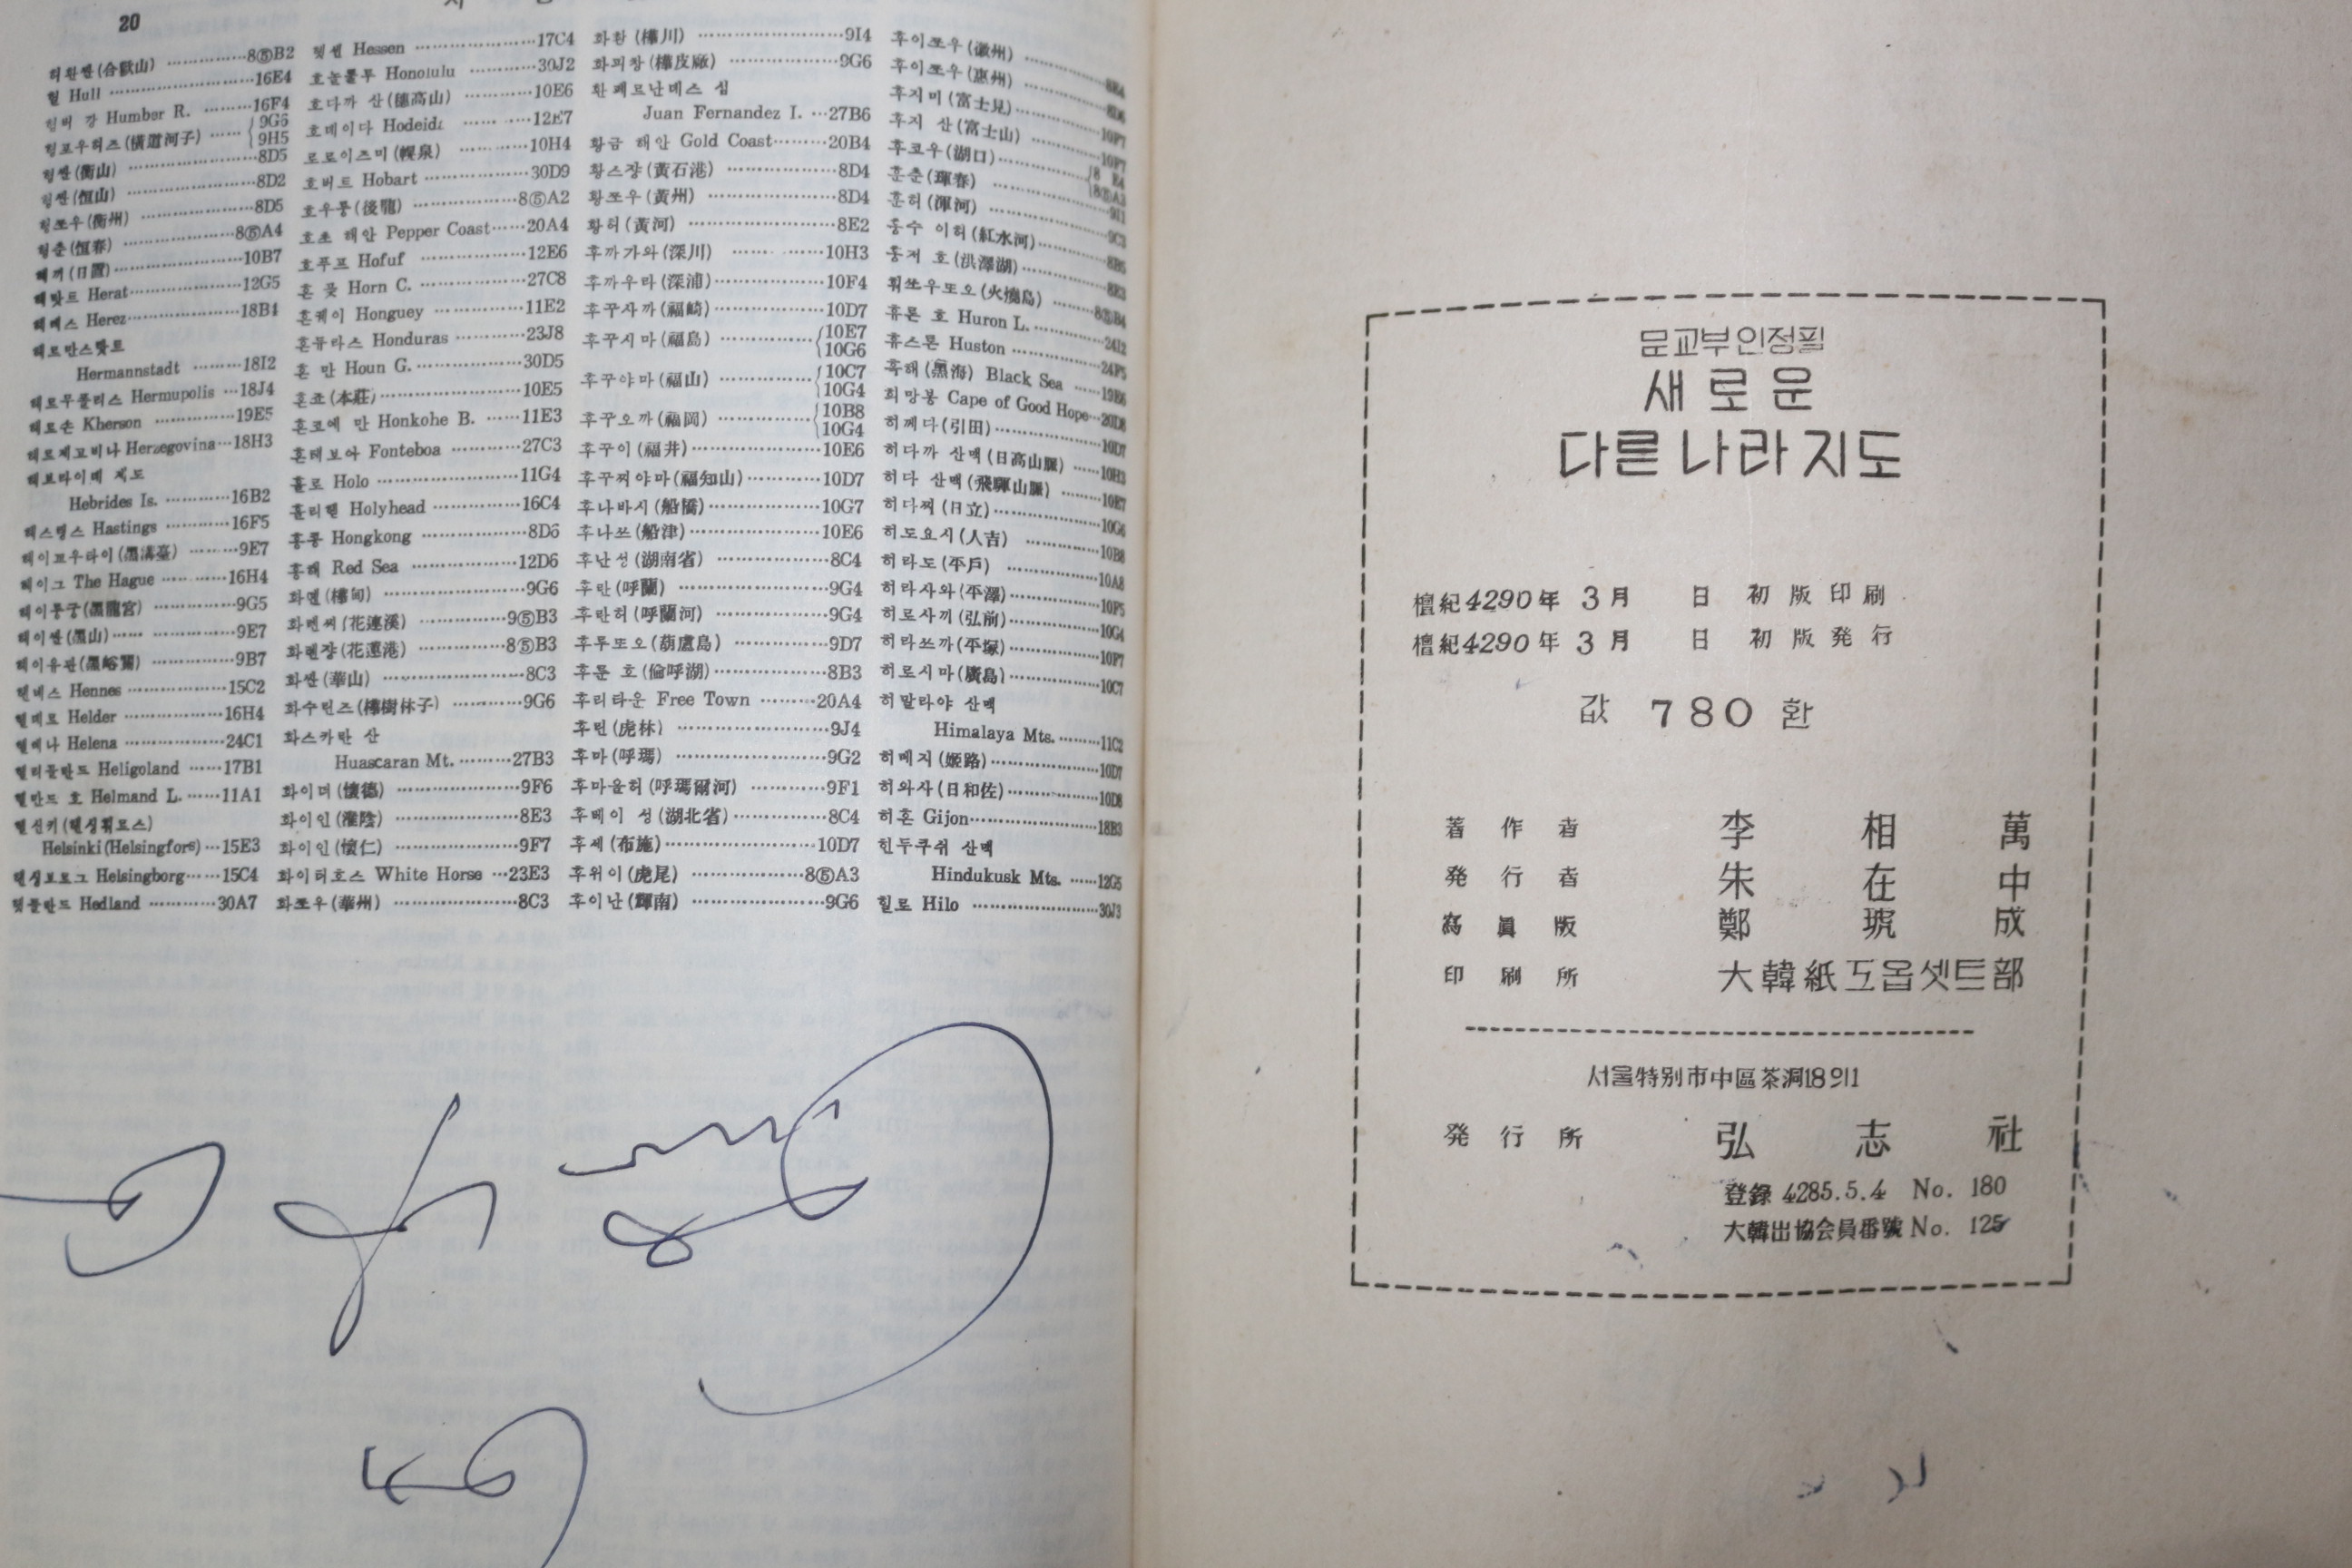 20
허환싼(合歡山) 8⑤B2
헐 Hull 16E4
험버 강 Humber R. 16F4
헝꼬우허즈(橫道河子) {9G6 9H5
헝싼(衡山) 8D5
헝싼(恒山) 8D2
헝쪼우(衡州) 8D5
헝춘(恒春) 8⑤A4
헤끼(日置) 10B7
헤랏트 Herat 12G5
헤레스 Herez 18B4
헤르만스탓트
Hermannstadt 18I2
헤르무폴리스 Hermupolis 18J4
헤르손 Kherson 19E5
헤르제고비나 Herzegovina 18H3
헤브라이데 제도
Hebrides Is. 16B2
헤스팅스 Hastings 16F5
헤이꼬우타이(黑溝臺) 9E7
헤이그 The Hague 16H4
헤이룽궁(黑龍宮) 9G5
헤이싼(黑山) 9E7
헤이유판(黑峪) 9B7
헨네스 Hennes 15C2
헬데르 Helder 16H4
헬레나 Helena 24C1
헬리골란드 Heligoland 17B1
헬만드 호 Helmand L. 11A1
헬신키(헬싱훠르스)
Helsinki(Helsingfors) 15E3
헬싱보르그 Helsingborg 15C4
헷들란드 Hedland 30A7
헷센 Hessen 17C4
호놀룰루 Honolulu 30J2
호다까 산(穗高山) 10E6
호데이다 Hodeida 12E7
로로이즈미(幌泉) 10H4
호버트 Hobart 30D9
호우룽(後龍) 8⑤A2
호초 해안 Pepper Coast 20A4
호푸프 Hofuf 12E6
혼 곶 Horn C. 27C8
혼궤이 Honguey 11E2
혼듀라스 Honduras 23J8
혼 만 Houn G. 30D5
혼죠(本莊) 10E5
혼코에 만 Honkohe B. 11E3
혼테보아 Fonteboa 27C3
홀로 Holo 11G4
홀리헫 Holyhead 16C4
홍콩 Hongkong 8D6
홍해 Red Sea 12D6
화뎬(樺甸) 9G6
화롄씨(花蓮溪) 9⑤B3
화롄쟝(花蓮港) 8⑤B3
화싼(華山) 8C3
화수린즈(樺樹林子) 9G6
화스카란 산
Huascaran Mt. 27B3
화이더(懷德) 9F6
화이인(淮陰) 8E3
화이인(懷仁) 9F7
화이터호스 White Horse 23E3
화쪼우(華州) 8C3
화촨(樺川) 9I4
화피창(樺皮廠) 9G6
환 페르난데스 섬
Juan Fernandez I. 27B6
황금 해안 Gold Coast 20B4
황스쟝(黃石港) 8D4
황쪼우(黃州) 8D4
황허(黃河) 8E2
후까가와(深川) 10H3
후까우라(深浦) 10F4
후꾸사끼(福崎) 10D7
후꾸시마(福島) {10E7 10G6
후꾸야마(福山) {10C7 10G4
후꾸오까(福岡) {10B8 10G4
후꾸이(福井) 10E6
후꾸찌야마(福知山) 10D7
후나바시(船橋) 10G7
후나쯔(船津) 10E6
후난성(湖南省) 8C4
후란(呼蘭) 9G4
후란허(呼蘭河) 9G4
후루또오(葫盧島) 9D7
후룬 호(倫呼湖) 8B3
후리타운 Free Town 20A4
후린(虎林) 9J4
후마(呼瑪) 9G2
후마올허(呼瑪爾河) 9F1
후베이 성(湖北省) 8C4
후세(布施) 10D7
후위이(虎尾) 8⑤A3
후이난(輝南) 9G6
후이쪼우(徽州) 8E4
후이쪼우(惠州) 8D6
후지미(富士見) 10F7
후지 산(富士山) 10F7
후코우(湖口) {8 E4 8⑤A3
훈춘(琿春) 9I1
훈허(渾河) 9C3
홍수 이허(紅水河) 8B5
홍저 호(洪澤湖) 8E3
훠쏘우또오(火燒島) 8⑤B4
휴론 호 Huron L. 24I2
휴스톤 Huston 24F5
흑해(黑海) Black Sea 19E6
희망봉 Cape of Good Hope 20D8
히께다(引田) 10D7
히다까 산맥(日高山脈) 10H3
히다 산맥(飛驒山脈) 10E7
히다찌(日立) 10G6
히도요시(人吉) 10B8
히라도(平戶) 10A8
히라사와(平澤) 10F5
히로사끼(弘前) 10G4
히라쓰까(平塚) 10F7
히로시마(廣島) 10C7
히말라야 산맥
Himalaya Mts. 11C2
히메지(姬路) 10D7
히와사(日和佐) 10D8
히혼 Gijon 18B3
힌두쿠쉬 산맥
Hindukusk Mts. 12G5
힐로 Hilo 30J3
문교부인정필
새로운
다른나라지도
檀紀4290年 3月 日 初版印刷
檀紀4290年 3月 日 初版発行
값 780 환
著作者 李相萬
発行者 朱在中
寫眞版 鄭琥成
印刷所 大韓紙工옵셋트部
서울特別市中區茶洞18의1
発行所 弘志社
登錄 4285.5.4 No. 180
大韓出協会員番號 No. 125